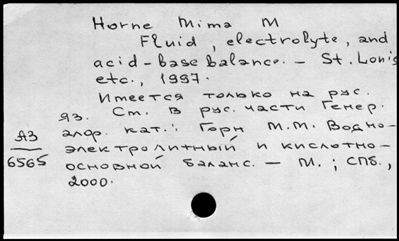 Horne Mima M
Fluid, electrolyte, and
acid-base balance. - St. Louis
etc., 1997.
Имеется только на рус.
яз. См. в рус. части Генер.
алф. кат.: Горн М.М. Водно-
электролитный и кислотно-
основной баланс. - М.; СПб.,
2000.
А3
6565